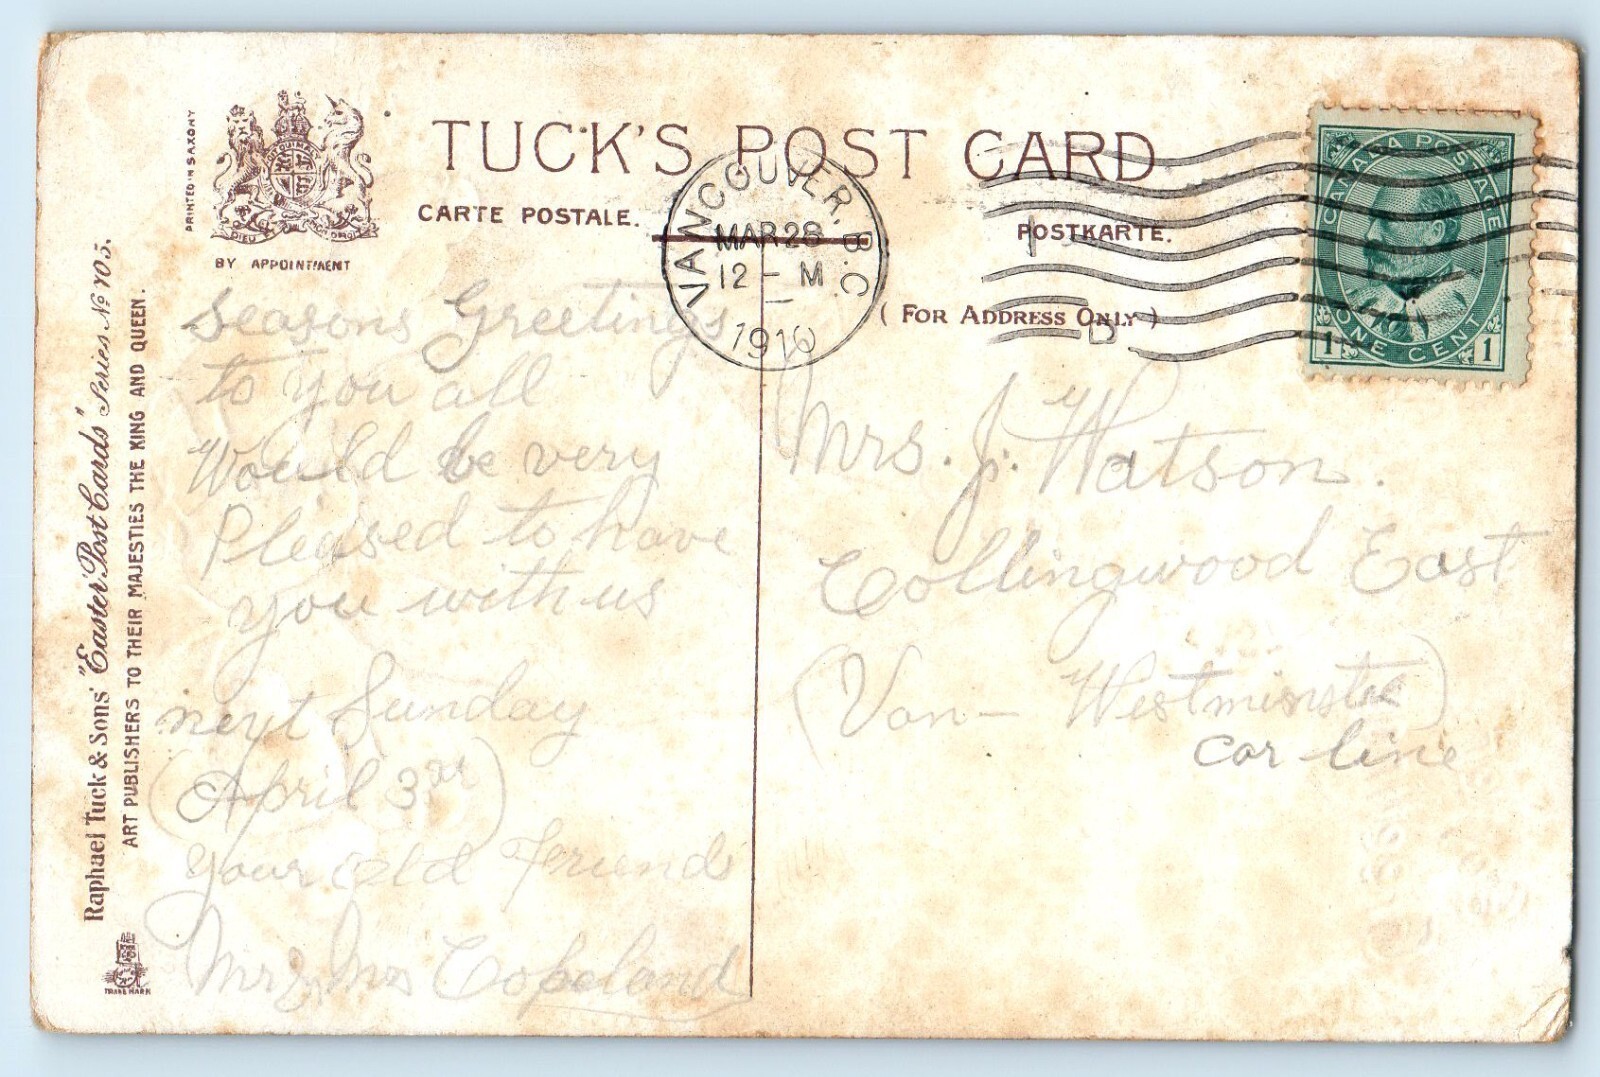 PRINTED IN SAXONY
DIEU
BY APPOINTMENT
TUCK'S POST CARD
CARTE POSTALE.
POSTKARTE.
(FOR ADDRESS ONLY)
VANCOUVER, B.C.
MAR 28
12 - M
1910
CANADA POSTAGE
1 ONE CENT 1
Raphael Tuck & Sons' "Easter" Post Cards" Series No 705.
ART PUBLISHERS TO THEIR MAJESTIES THE KING AND QUEEN.
TRADE MARK
Seasons Greetings
to you all
Would be very
Pleased to have
you with us
next Sunday
(April 3rd)
your old friends
Mr & Mrs Copeland
Mrs. J. Watson.
Collingwood East
(Van - Westminster)
car line